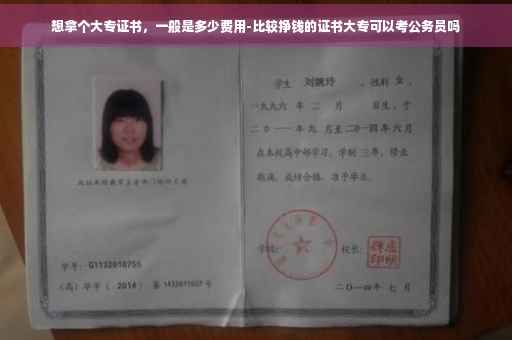 想拿个大专证书，一般是多少费用-比较挣钱的证书大专可以考公务员吗
学生 刘婉玲 ，性别 女 ，
一九九六 年 二 月 日生，于
二〇一一年九 月至二〇一四年六月
在本校高中部学习，学制 三年，修业
期满，成绩合格，准予毕业。
学号： G1132010755
学校： 校长：
（高）毕字（ 2014 ）第 1432011027 号
二〇一四年 七 月